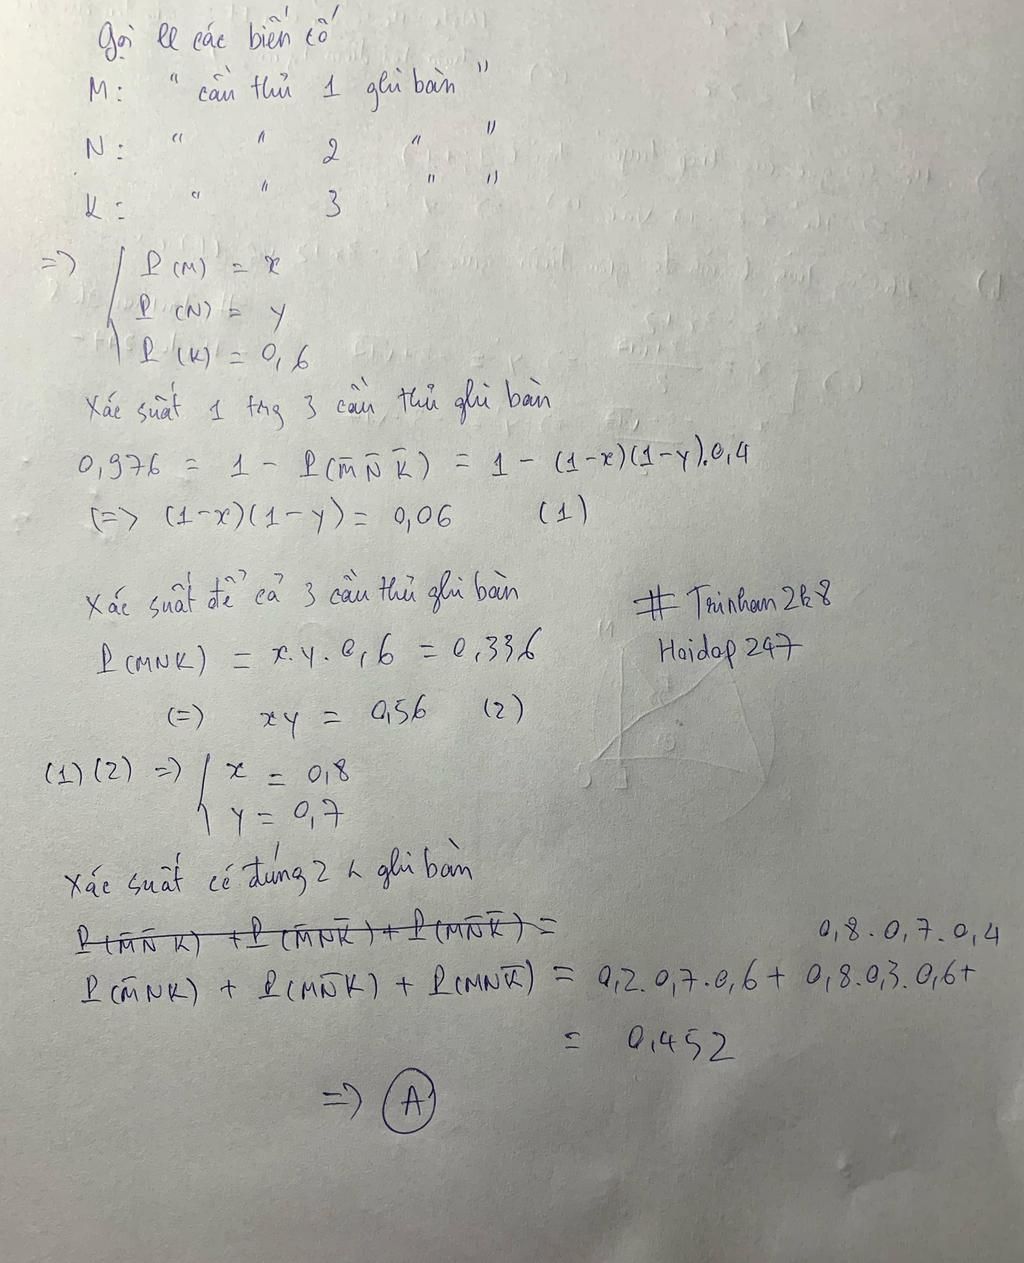 Gọi ll các biến cố
M: " cầu thủ 1 ghi bàn "
N: " " 2 " "
K: " " 3 " "
=> { P(M) = x
P(N) = y
P(K) = 0,6
Xác suất 1 trg 3 cầu thủ ghi bàn
0,976 = 1 - P(M̄ N̄ K̄) = 1 - (1-x)(1-y).0,4
(=> (1-x)(1-y) = 0,06 (1)
Xác suất để cả 3 cầu thủ ghi bàn
P(MNK) = x.y.0,6 = 0,336
(=) xy = 0,56 (2)
# Trinhan2k8
Hoidap247
(1)(2) => { x = 0,8
y = 0,7
Xác suất có đúng 2 ghi bàn
P(M̄N̄K) + P(M̄NK̄) + P(MN̄K̄) =
0,8.0,7.0,4
P(M̄NK) + P(MN̄K) + P(MNK̄) = 0,2.0,7.0,6 + 0,8.0,3.0,6+
= 0,452
=> A